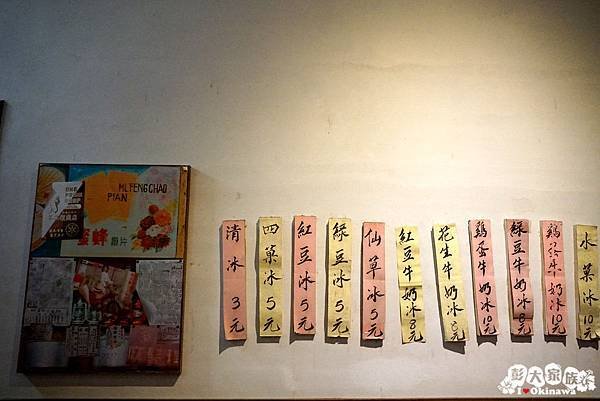 MI FENG CHAO
PIAN
蜜蜂
清冰3元
四菓冰5元
紅豆冰5元
綠豆冰5元
仙草冰5元
紅豆牛奶冰8元
花生牛奶冰8元
鷄蛋牛奶冰10元
綠豆牛奶冰8元
鷄蛋牛奶冰10元
水菓冰10元
彭大家族
I ♥ Okinawa